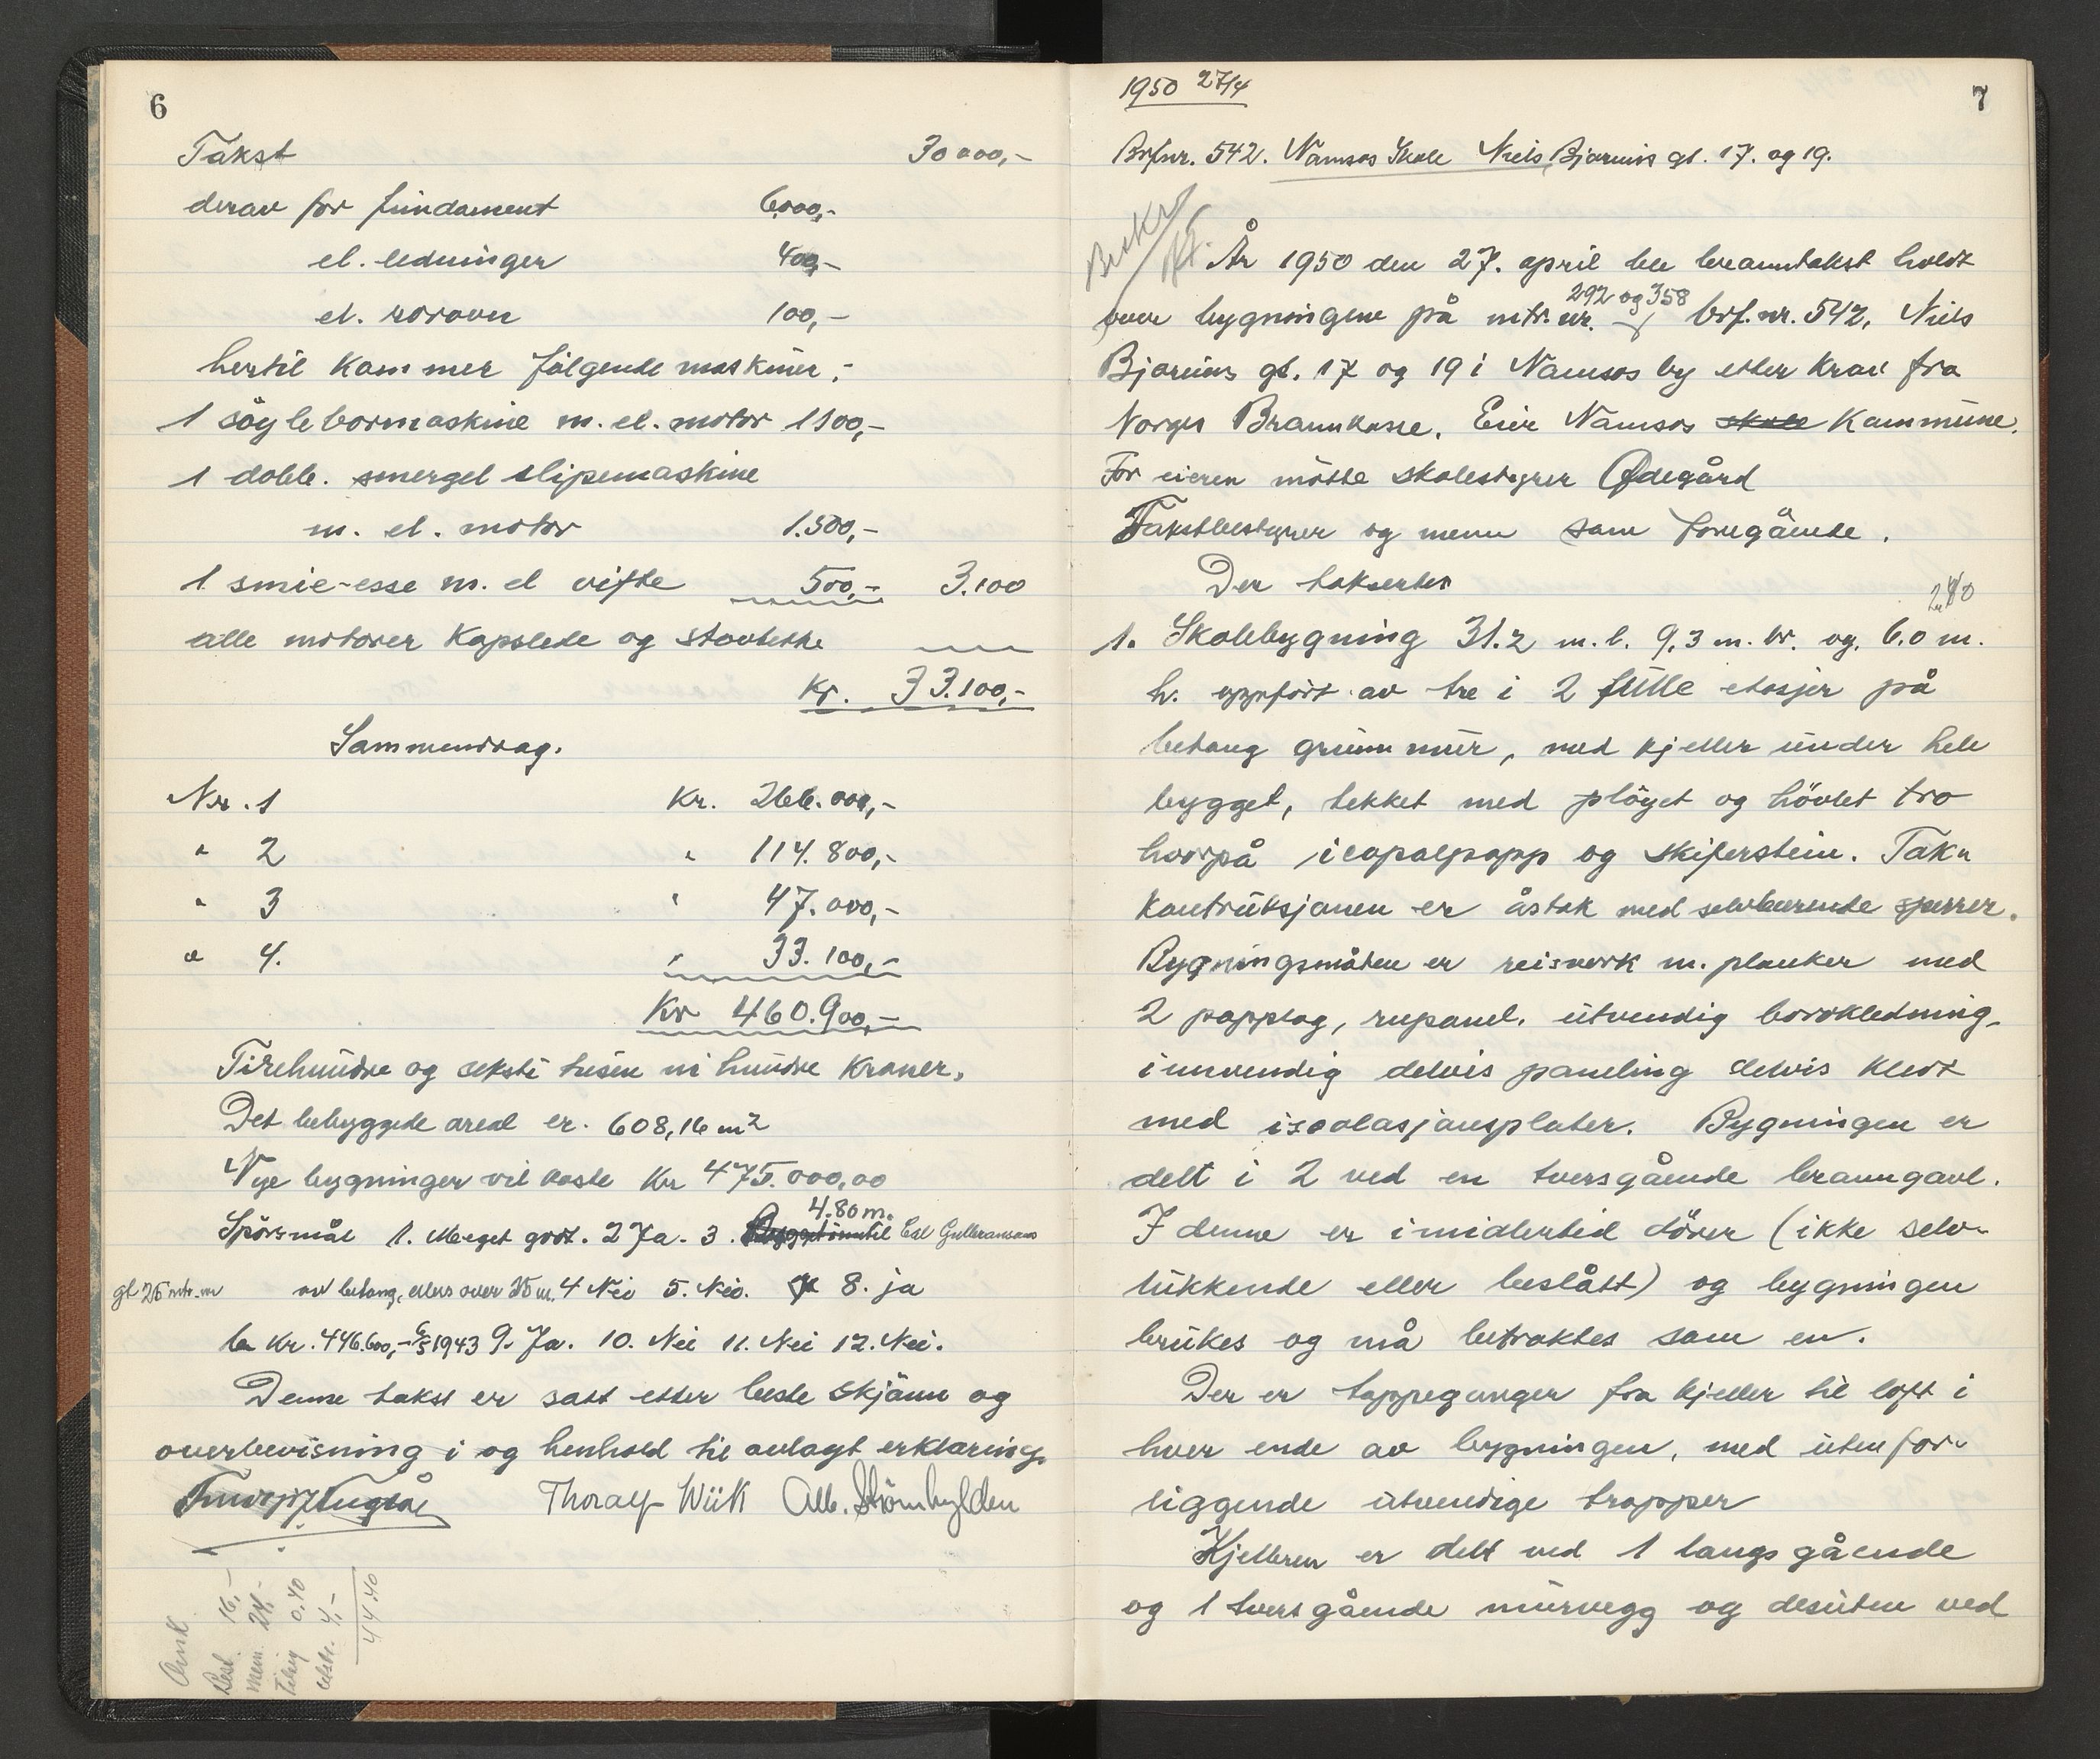 6
Takst 30000,-
derav for fundament 6000,-
el. ledninger 400,-
el. rørovn 100,-
hertil kommer følgende maskiner:
1 söylebormaskine m. el. motor 1100,-
1 dobb. smergel slipemaskine
m. el. motor 1.500,-
1 smie-esse m. el vifte 500,- 3.100
alle motorer kapslede og støvtette
Kr. 33.100,-
Sammendrag.
Nr. 1 Kr. 266.000,-
" 2 " 114.800,-
" 3 " 47.000,-
" 4. " 33.100,-
Kr 460.900,-
Firehundre og seksti tusen ni hundre kroner.
Det bebyggede areal er. 608,16 m2
Nye bygninger vil koste Kr 475.000,00
4.80 m.
Spörsmål 1. Meget godt. 2 Ja. 3. Esl Gulleransens
gt 25 mtr. m av betong, ellers over 25 m. 4 Nei 5. Nei. 8. ja
Kr. 446.600,- 6/5 1943 9. Ja. 10. Nei 11. Nei 12. Nei.
Denne takst er satt etter beste skjönn og
overbevisning i og henhold til avlagt erklæring.
Thoralf Wiik Alb. Strömhylden
16,-
Men. 24,-
0.40
4,-
44.40
1950 27/4
7
Brfnr. 542. Namsos Skole Niels Bjørums gt. 17. og 19.
År 1950 den 27. april ble branntakst holdt
292 og 358
over bygningene på mtr. nr. brf. nr. 542, Niels
Bjørums gt. 17 og 19 i Namsos by etter krav fra
Norges Brannkasse. Eier Namsos skole Kommune.
For eieren mötte skolestyrer Ødegård
Takstbestyrer og menn som foregående.
Der takseres
1. Skolebygning 31.2 m. l. 9,3 m. br. og. 6.0 m.
h. oppfört av tre i 2 fulle etasjer på
betong grunnmur, med kjeller under hele
bygget, tekket med plöyet og hövlet tro
hvorpå icopalpapp og skiferstein. Tak-
kontruksjonen er åstak med selvbærende sperrer.
Bygningsmåten er reisverk m. planker med
2 papplag, rupanel. utvendig bordkledning,
innvendig delvis paneling delvis kledt
med isolasjonsplater. Bygningen er
delt i 2 ved en tversgående branngavl.
I denne er imidlertid dörer (ikke selv-
lukkende eller beslått) og bygningen
brukes og må betraktes som en.
Der er trappeganger fra kjeller til loft i
hver ende av bygningen, med utenfor-
liggende utvendige trapper
Kjelleren er delt ved 1 langsgående
og 1 tversgående murvegg og desuten ved